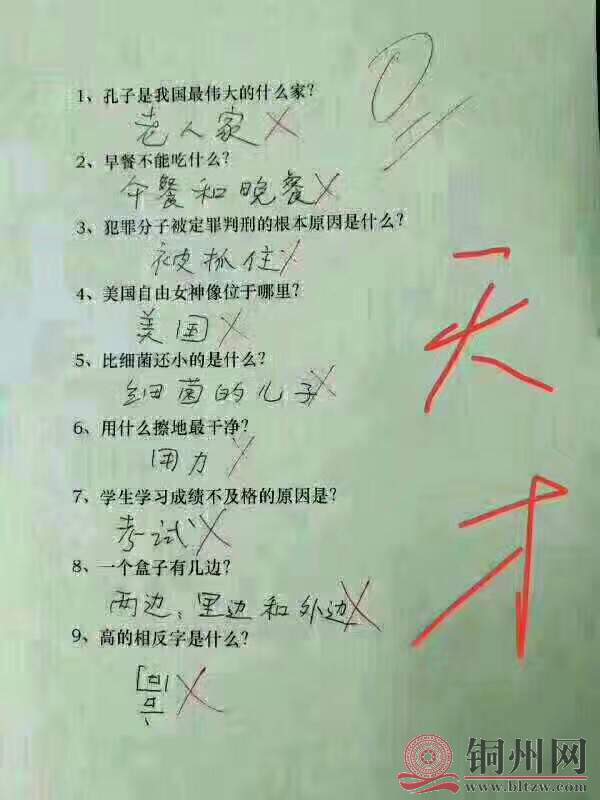 0
1、孔子是我国最伟大的什么家?
老人家
2、早餐不能吃什么?
午餐和晚餐
3、犯罪分子被定罪判刑的根本原因是什么?
被抓住
4、美国自由女神像位于哪里?
美国
5、比细菌还小的是什么?
细菌的儿子
6、用什么擦地最干净?
用力
7、学生学习成绩不及格的原因是?
考试
8、一个盒子有几边?
两边、里边和外边
9、高的相反字是什么?
天才
铜州网
www.bltzw.cn